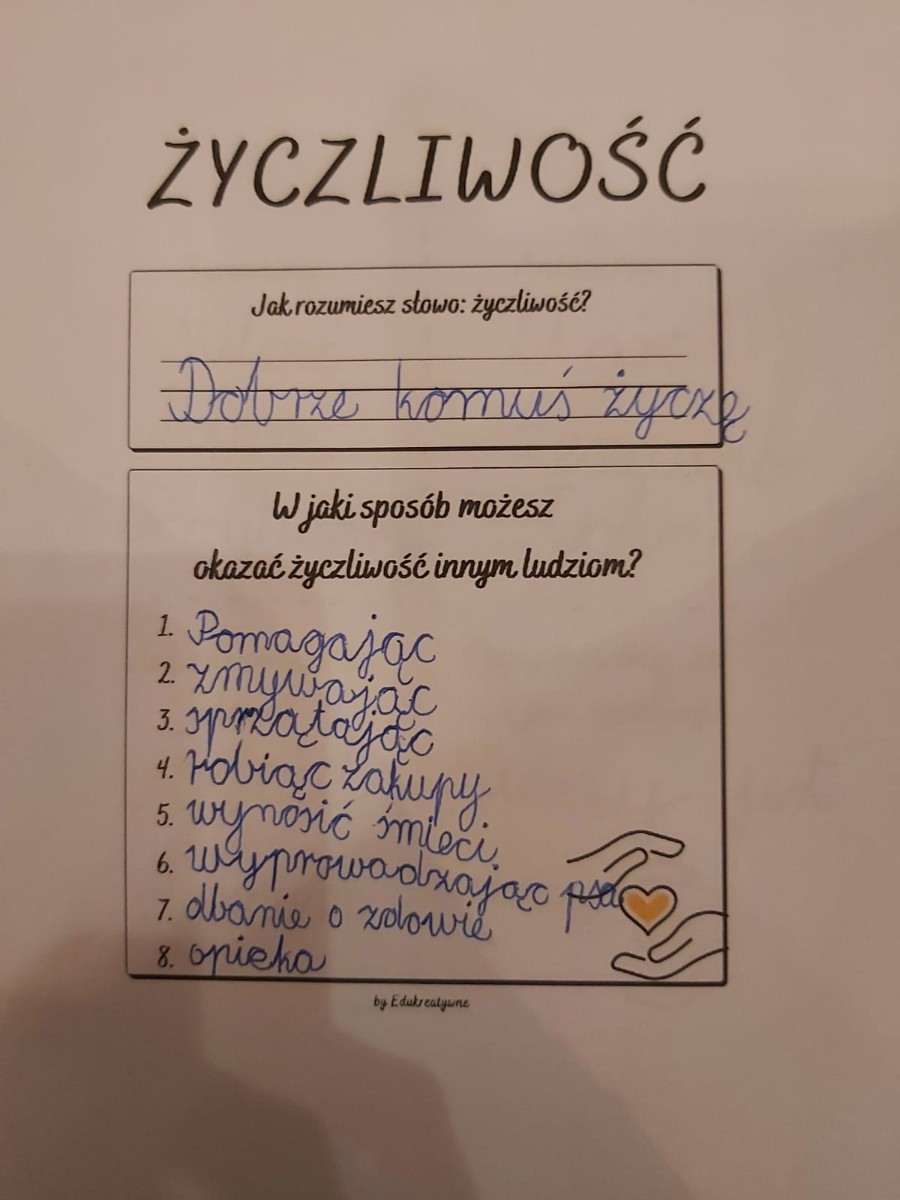 ŻYCZLIWOŚĆ
Jak rozumiesz słowo: życzliwość?
Dobrze komuś życzę
W jaki sposób możesz
okazać życzliwość innym ludziom?
1. Pomagając
2. zmywając
3. sprzątając
4. robiąc zakupy
5. wynosić śmieci
6. wyprowadzając psa
7. dbanie o zdowie
8. opieka
by Edukreatywne